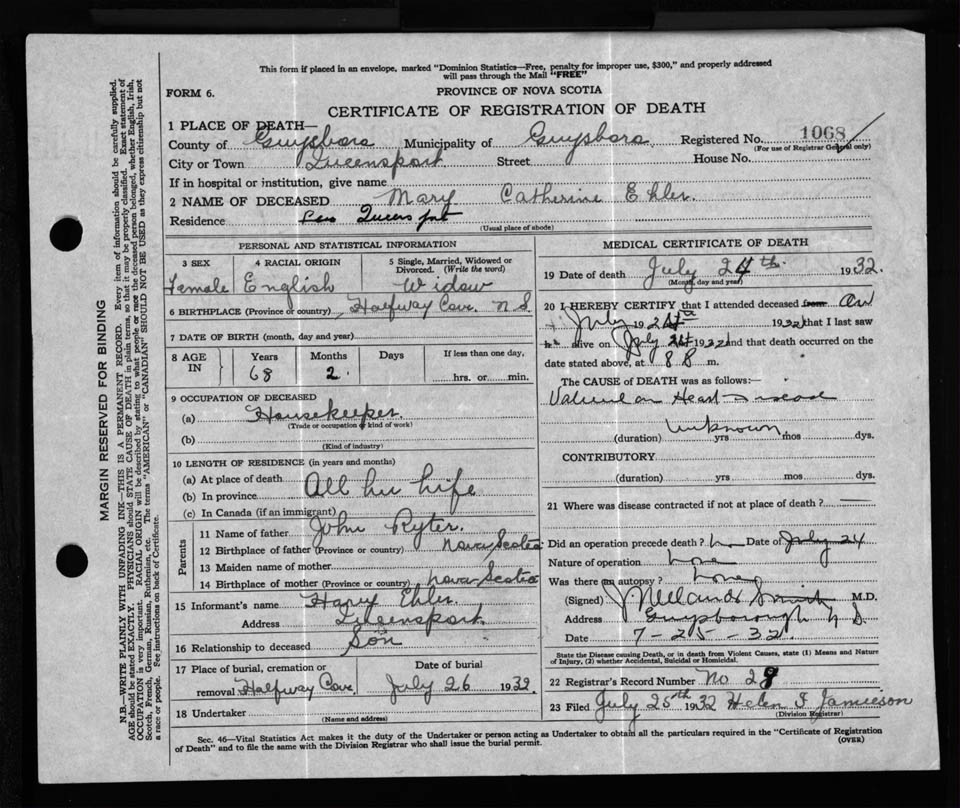 This form if placed in an envelope, marked "Dominion Statistics—Free, penalty for improper use, $300," and properly addressed
will pass through the Mail "FREE"
FORM 6.
PROVINCE OF NOVA SCOTIA
CERTIFICATE OF REGISTRATION OF DEATH
1 PLACE OF DEATH—
County of Guysboro Municipality of Guysboro Registered No. 1068
(For use of Registrar General only)
City or Town Queensport Street House No.
If in hospital or institution, give name
2 NAME OF DECEASED Mary Catherine Ehler.
Residence Queensport
(Usual place of abode)
PERSONAL AND STATISTICAL INFORMATION
3 SEX 4 RACIAL ORIGIN 5 Single, Married, Widowed or Divorced. (Write the word)
Female English Widow
6 BIRTHPLACE (Province or country) Halfway Cove. N.S.
7 DATE OF BIRTH (month, day and year)
8 AGE IN Years Months Days If less than one day,
68 2 hrs. or min.
9 OCCUPATION OF DECEASED
(a) Housekeeper.
(Trade or occupation or kind of work)
(b)
(Kind of industry)
10 LENGTH OF RESIDENCE (in years and months)
(a) At place of death
(b) In province All her life
(c) In Canada (if an immigrant)
Parents
11 Name of father John Ryter.
12 Birthplace of father (Province or country) Nova Scotia
13 Maiden name of mother
14 Birthplace of mother (Province or country) Nova Scotia
15 Informant's name Harry Ehler.
Address Queensport
16 Relationship to deceased Son
17 Place of burial, cremation or removal Date of burial
Halfway Cove. July 26 1932
18 Undertaker
(Name and address)
MEDICAL CERTIFICATE OF DEATH
19 Date of death July 24th. 1932.
(Month, day and year)
20 I HEREBY CERTIFY that I attended deceased from on
July 24th 19 1932 that I last saw
alive on July 24 1932 and that death occurred on the
date stated above, at 8 P. m.
The CAUSE OF DEATH was as follows:—
Valvular Heart Disease
(duration) Unknown yrs mos dys.
CONTRIBUTORY
(duration) yrs mos dys.
21 Where was disease contracted if not at place of death?
Did an operation precede death? Date of July 24
Nature of operation None
Was there an autopsy? None
(Signed) Smith M.D.
Address Guysborough N S.
Date 7-25-32.
State the Disease causing Death, or in death from Violent Causes, state (1) Means and Nature
of Injury, (2) whether Accidental, Suicidal or Homicidal.
22 Registrar's Record Number No 29
23 Filed July 25th 1932 Helen I Jamieson
(Division Registrar)
Sec. 46—Vital Statistics Act makes it the duty of the Undertaker or person acting as Undertaker to obtain all the particulars required in the "Certificate of Registration
of Death" and to file the same with the Division Registrar who shall issue the burial permit.
(OVER)
MARGIN RESERVED FOR BINDING
N.B.—WRITE PLAINLY WITH UNFADING INK—THIS IS A PERMANENT RECORD. Every item of information should be carefully supplied.
AGE should be stated EXACTLY. PHYSICIANS should STATE CAUSE OF DEATH in plain terms, so that it may be properly classified. Exact statement of
OCCUPATION is very important. RACIAL ORIGIN will be described by stating to what people or race the deceased person belonged, whether English, Irish,
Scotch, French, German, Russian, Ruthenian, etc. The terms "AMERICAN" or "CANADIAN" SHOULD NOT BE USED as they express citizenship but not
a race or people. See instructions on back of Certificate.